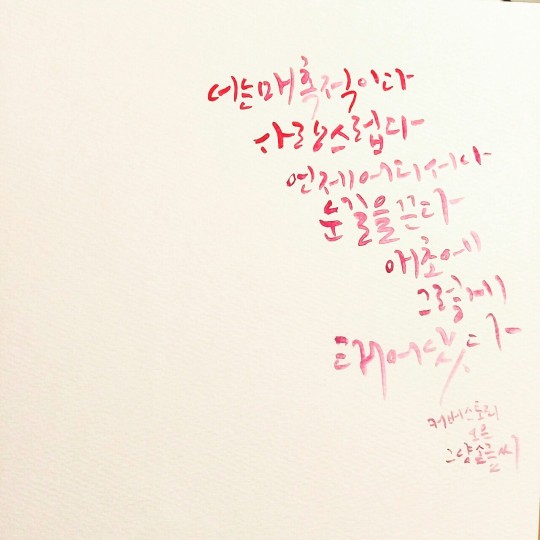 너는 매혹적이다
사랑스럽다
언제 어디서나
눈길을 끈다
애초에
그렇게
태어났다
커버스토리
모은
그냥손글씨